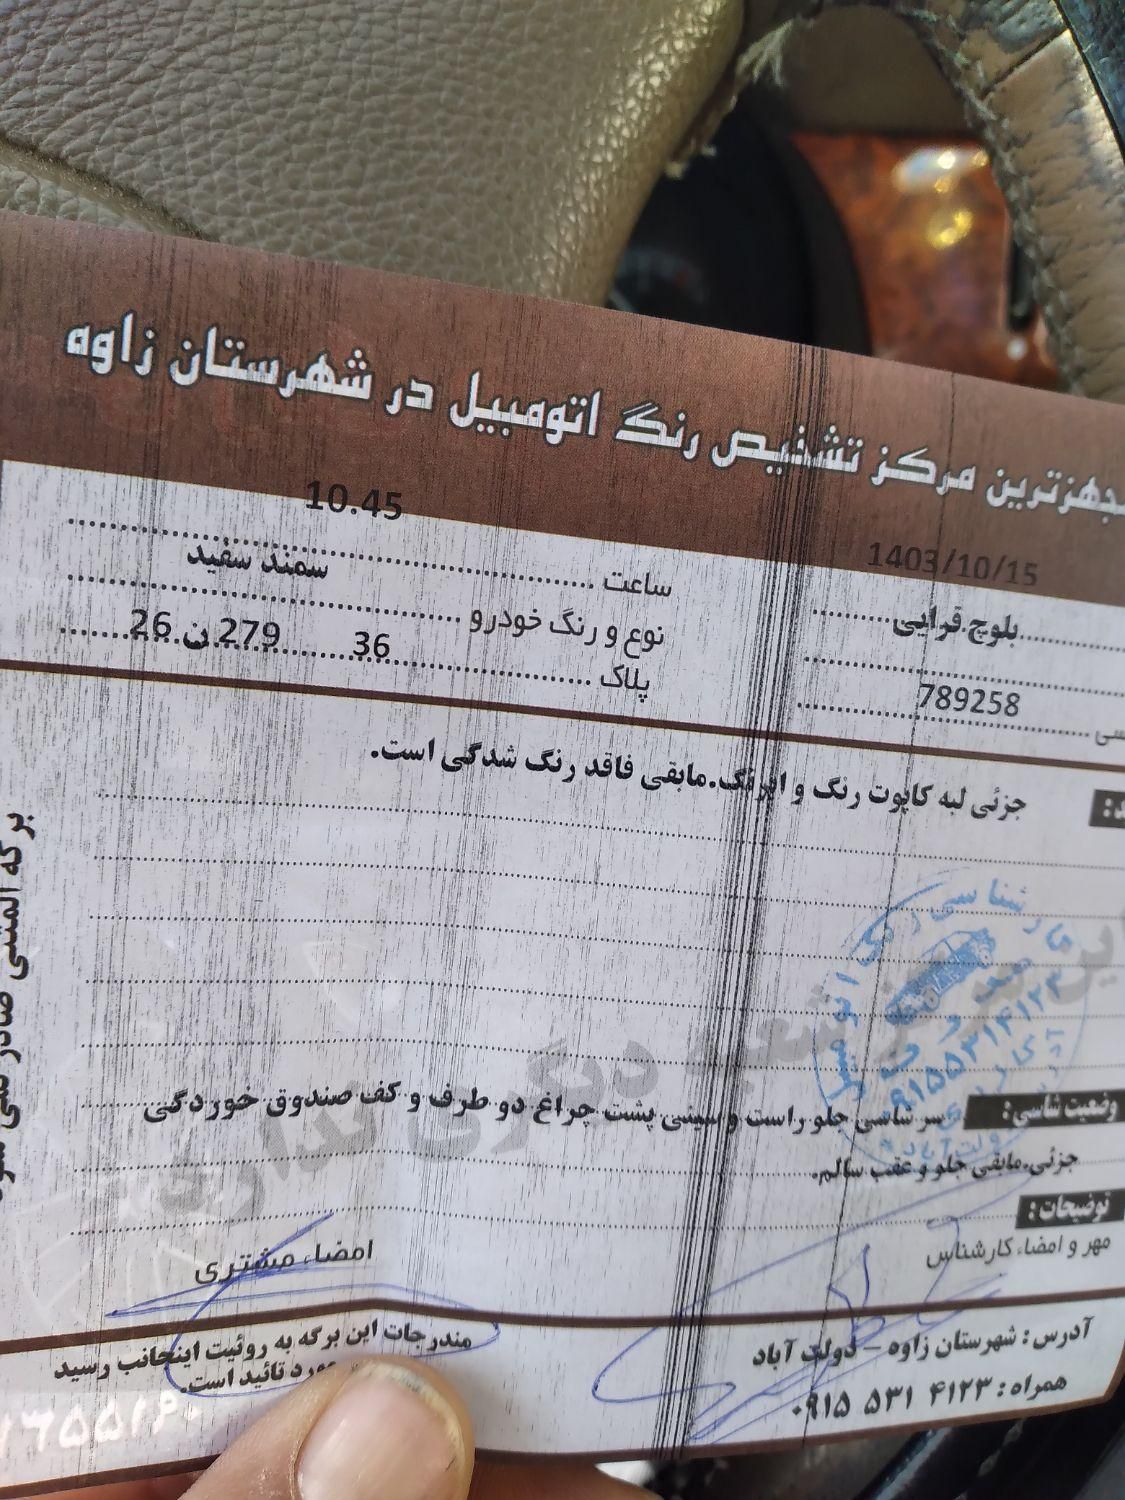 مجهزترین مرکز تشخیص رنگ اتومبیل در شهرستان زاوه
1403/10/15
ساعت 10.45
بلوچ قرایی
نوع و رنگ خودرو سمند سفید
789258
پلاک 26 ن 279 36
جزئی لبه کاپوت رنگ و ابرنگ.مابقی فاقد رنگ شدگی است.
وضعیت شاسی: سر شاسی جلو راست و سینی پشت چراغ دو طرف و کف صندوق خوردگی
جزئی.مابقی جلو و عقب سالم.
توضیحات:
مهر و امضاء کارشناس
امضاء مشتری
آدرس: شهرستان زاوه - دولت آباد
همراه: ۰۹۱۵ ۵۳۱ ۴۱۲۳
مندرجات این برگه به روئیت اینجانب رسید
مورد تائید است.
برگه المثنی صادر نمی
این مرکز شعبه دیگری ندارد
کارشناسی رنگ اتومبیل
۰۹۱۵۵۳۱۴۱۲۳